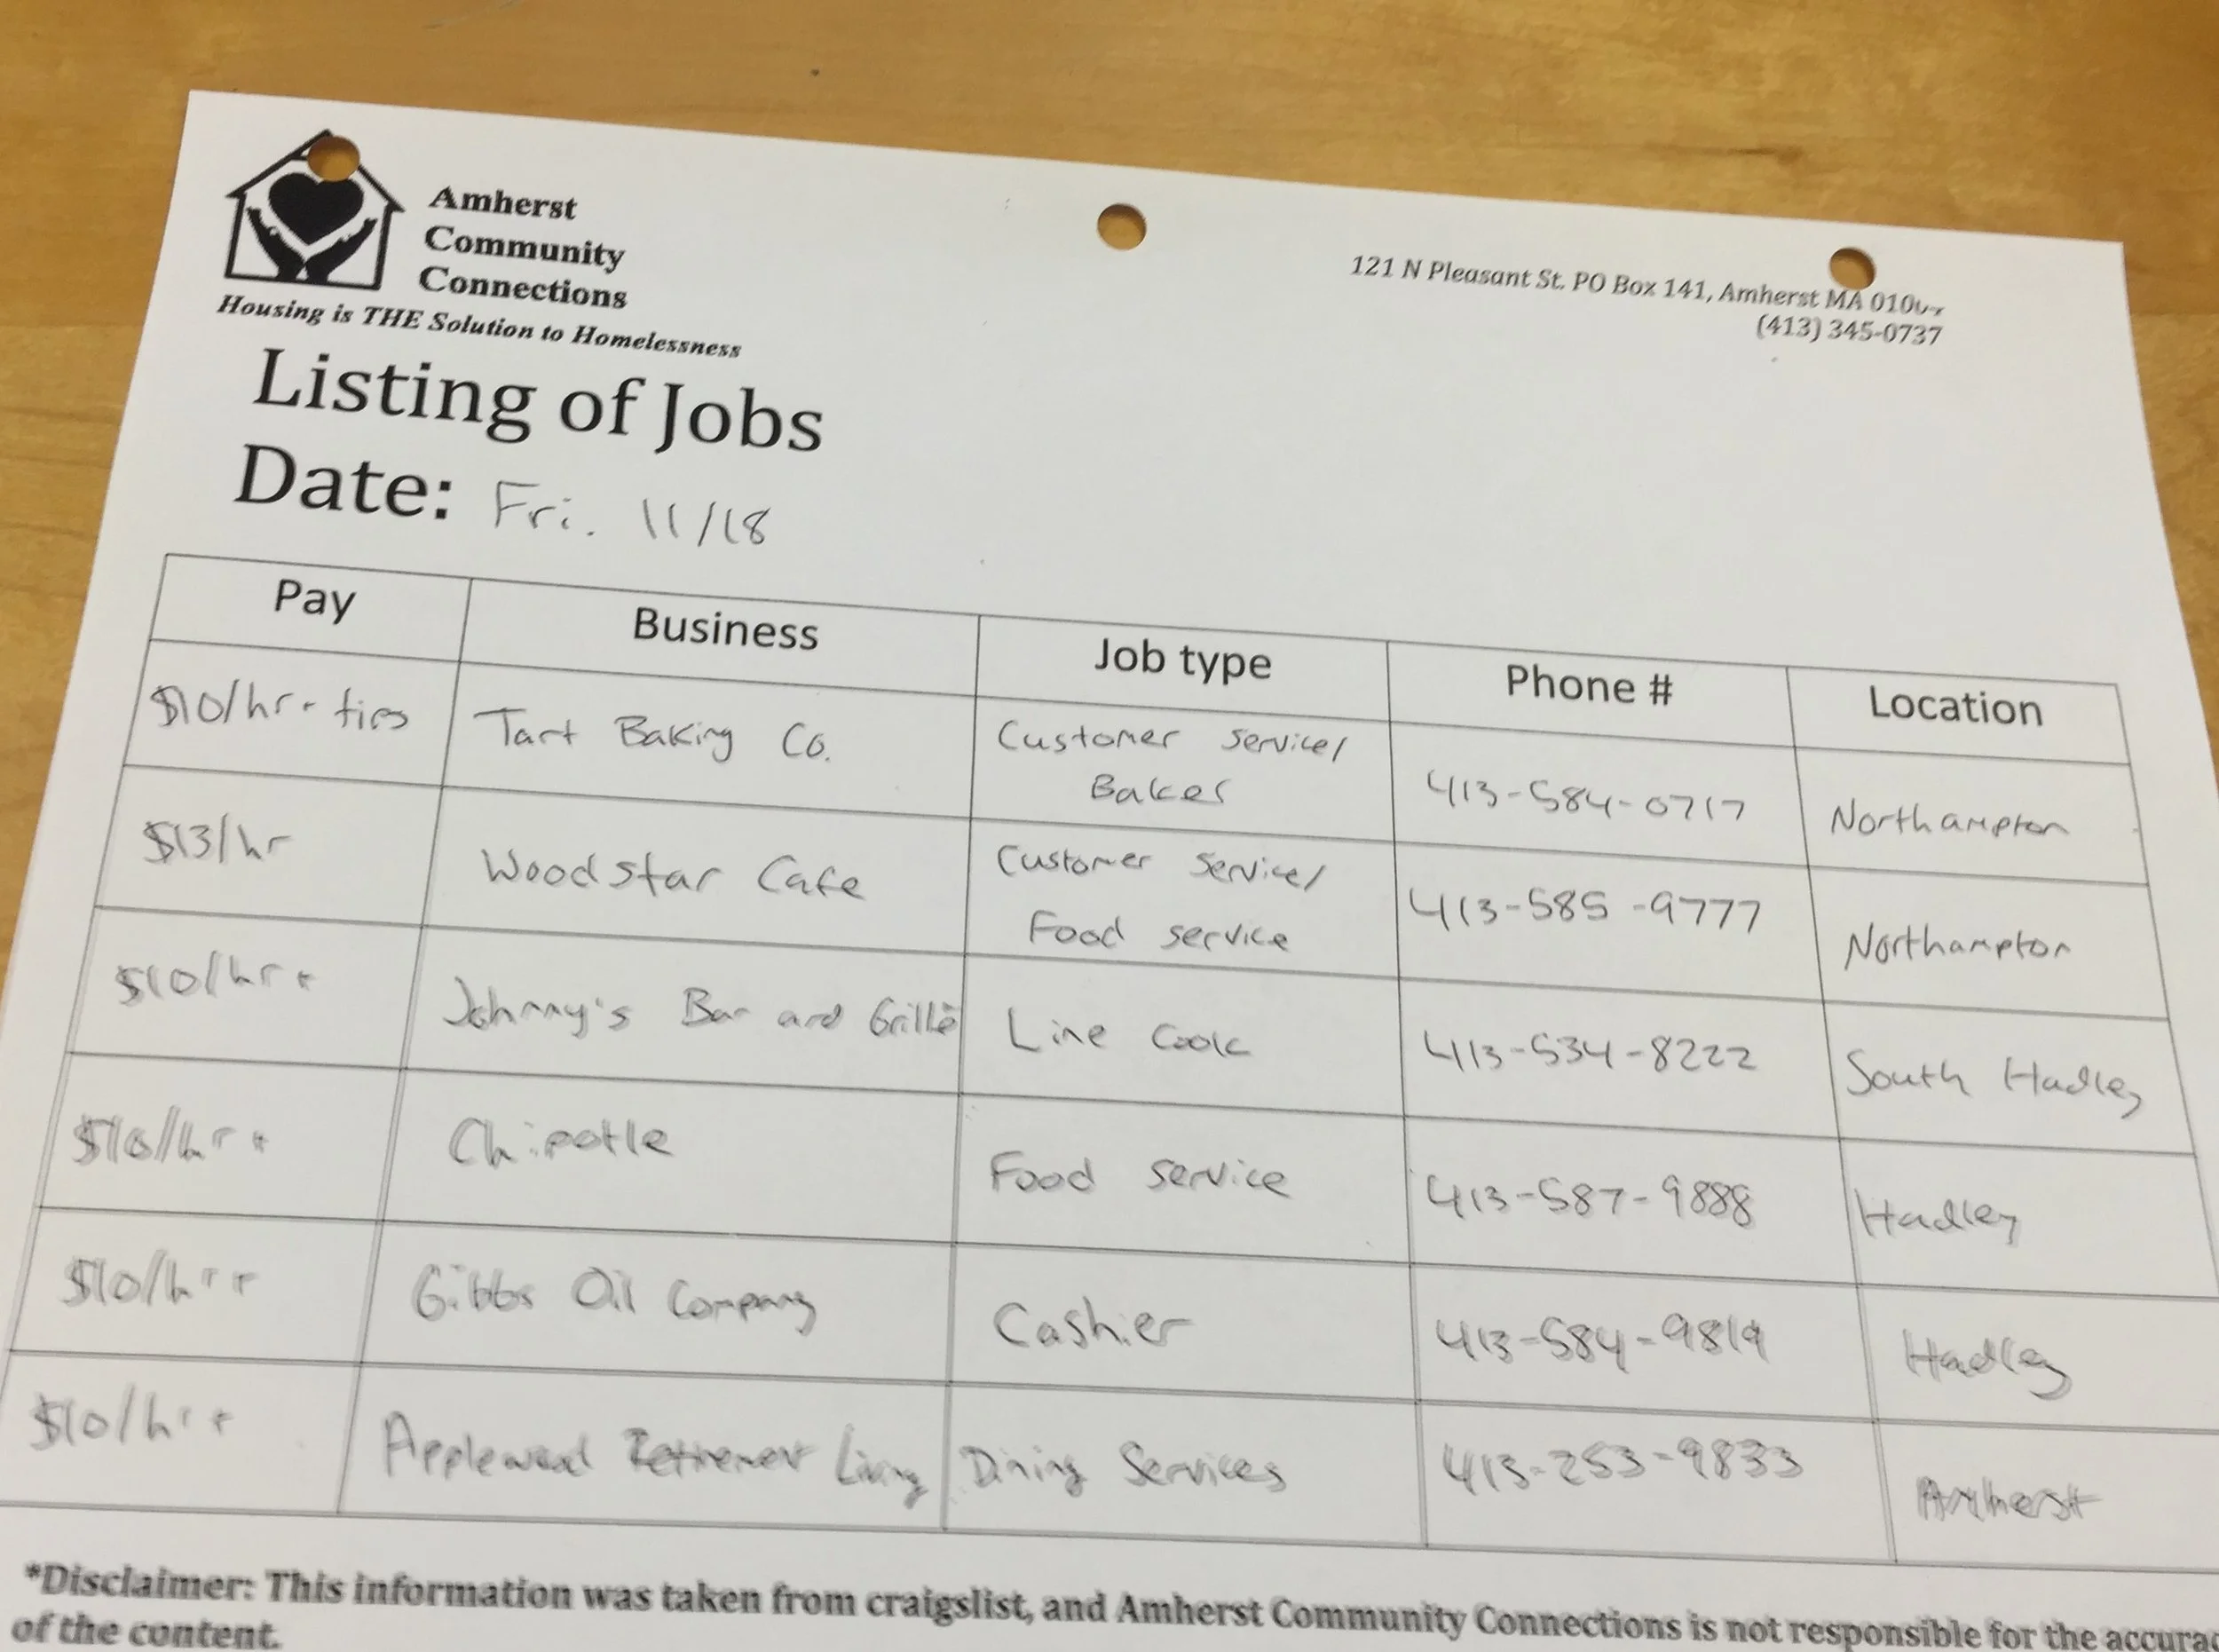 Amherst
Community
Connections
Housing is THE Solution to Homelessness
121 N Pleasant St. PO Box 141, Amherst MA
(413) 345-0737
Listing of Jobs
Date: Fri. 11/18
Pay Business Job type Phone # Location
$10/hr + tips Tart Baking Co. Customer service/ Baker 413-584-0717 Northampton
$13/hr Woodstar Cafe Customer service/ Food service 413-585-9777 Northampton
$10/hr + Johnny's Bar and Grille Line Cook 413-534-8222 South Hadley
$10/hr + Chipotle Food service 413-587-9888 Hadley
$10/hr + Gibbs Oil Company Cashier 413-584-9819 Hadley
$10/hr + Applewood Retirement Living Dining Services 413-253-9833 Amherst
*Disclaimer: This information was taken from craigslist, and Amherst Community Connections is not responsible for the
of the content.